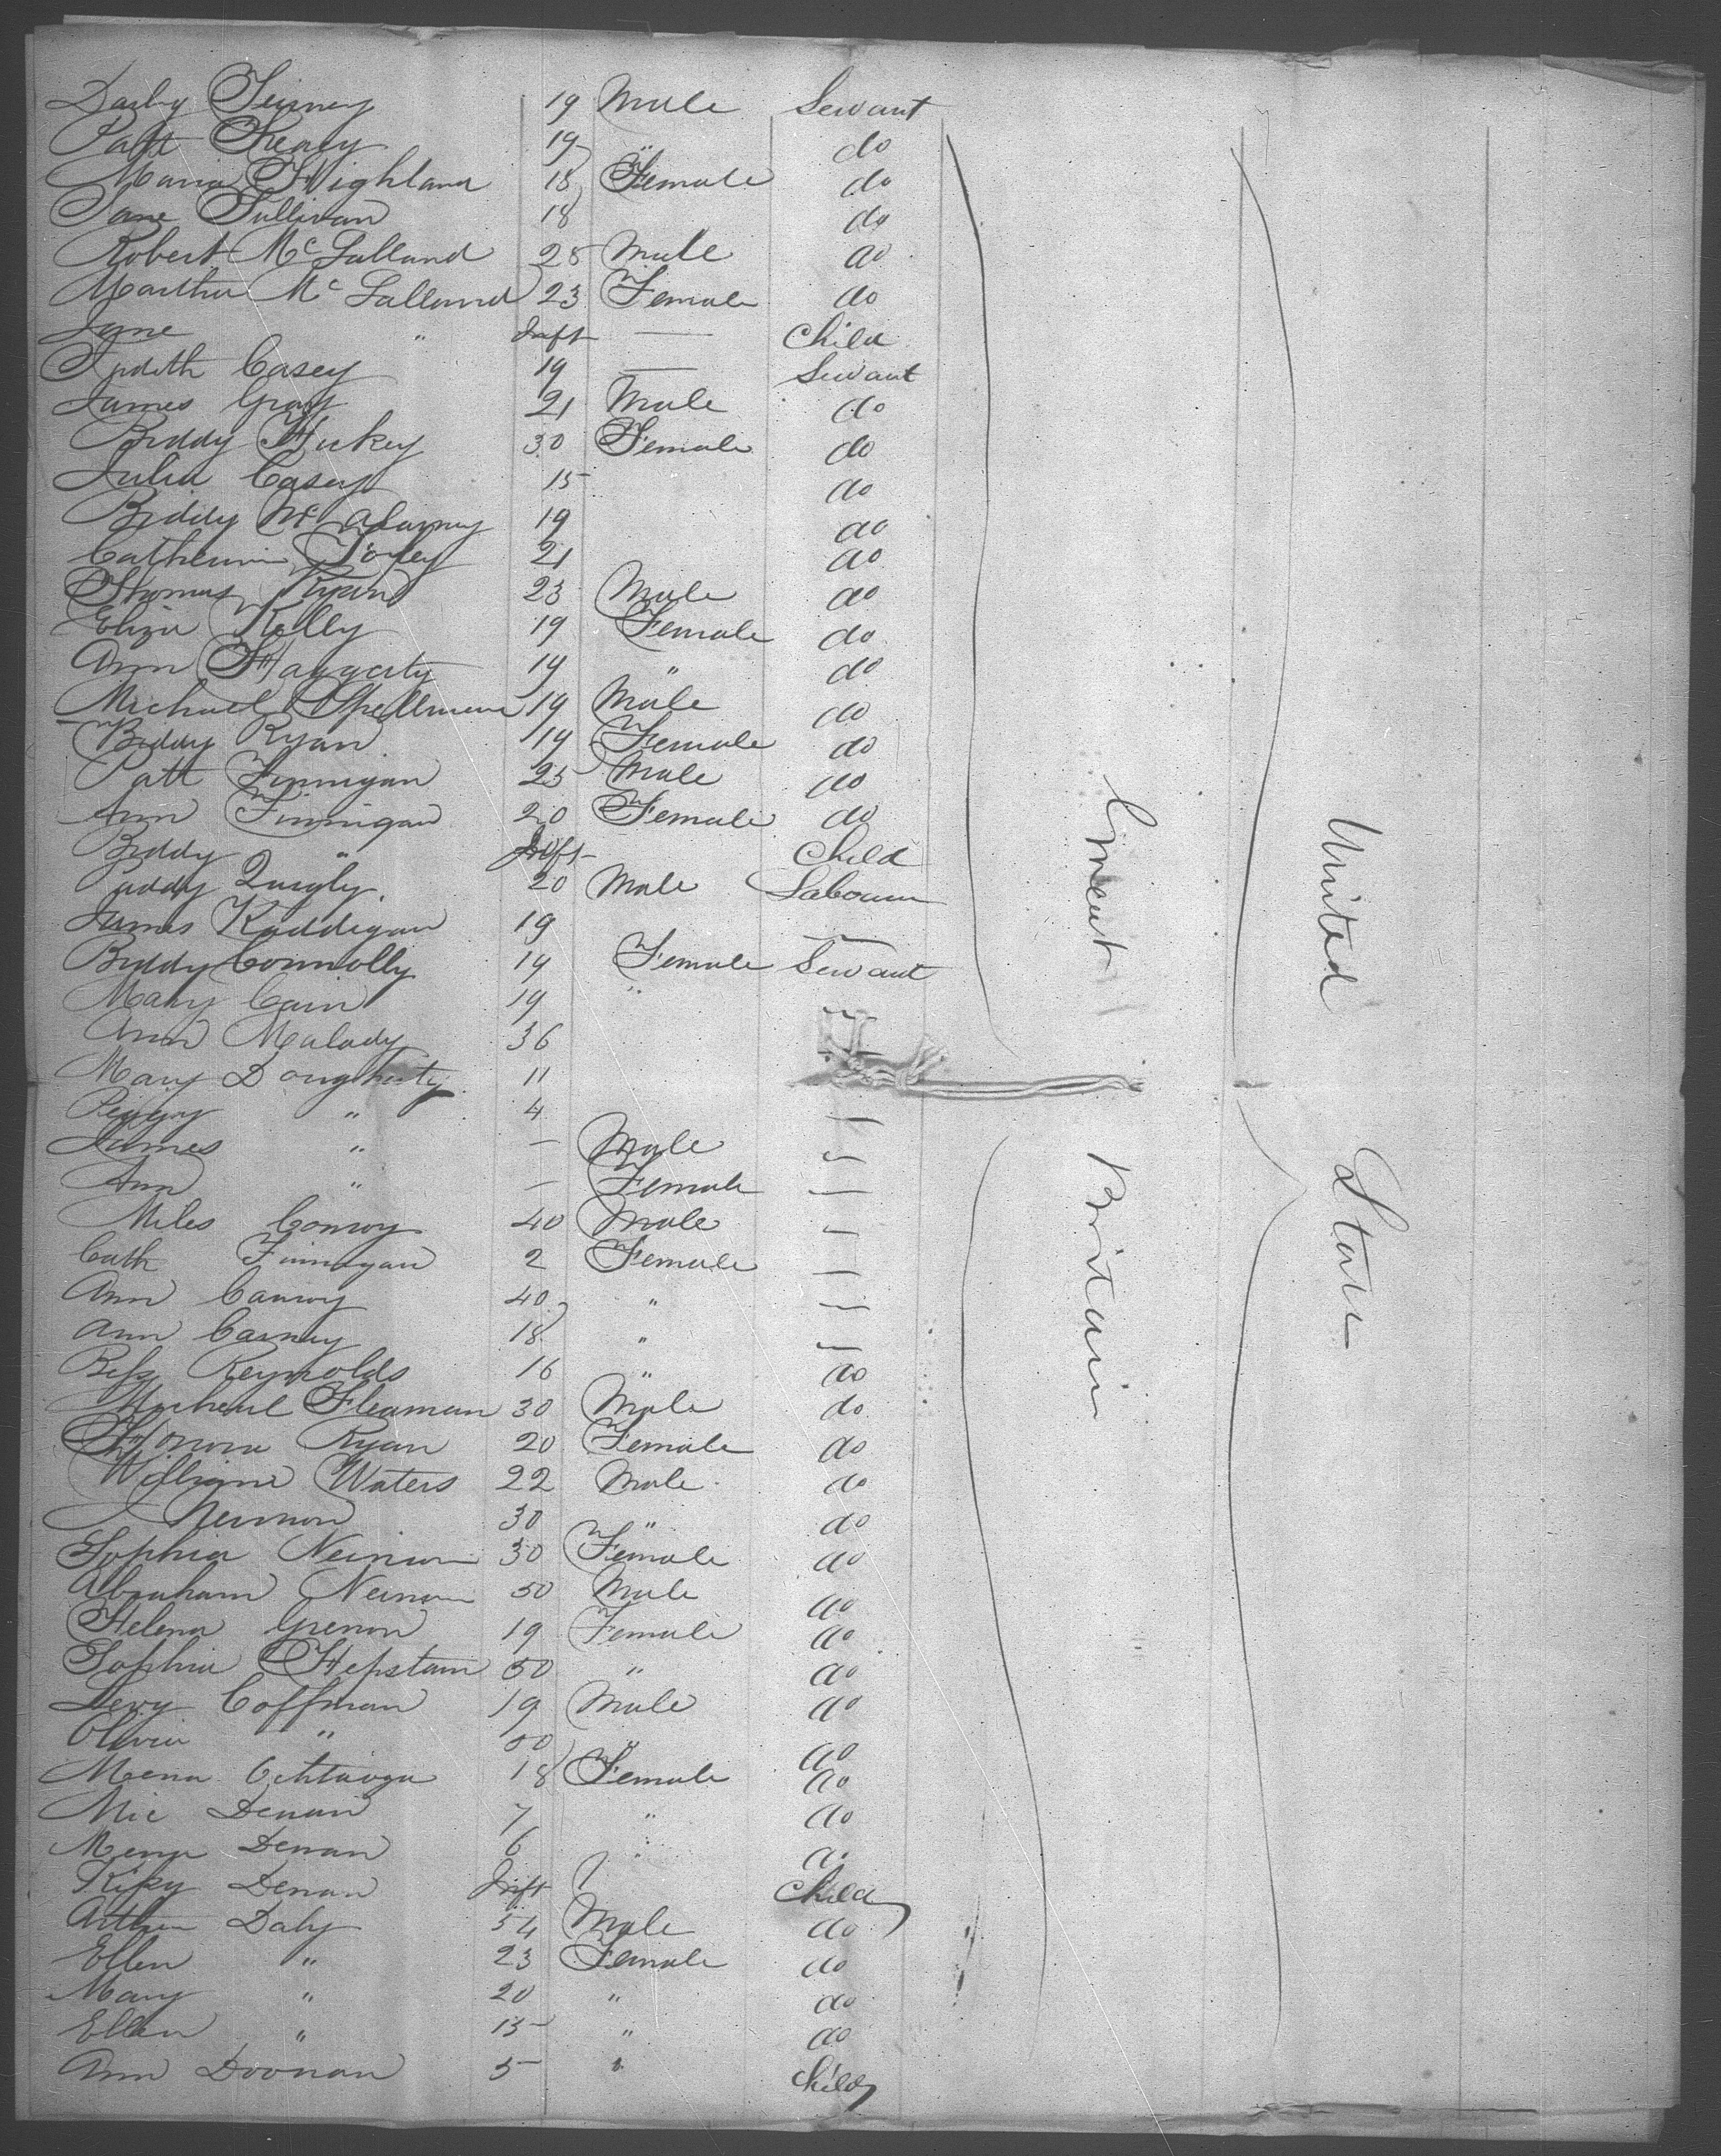 Darby Finney 19 Male Servant
Patt Keary 19 " do
Maria Highland 18 Female do
Jane Sullivan 18 do
Robert McLalland 28 Male do
Martha McLalland 23 Female do
Jane " Inft — Child
Judith Casey 19 — Servant
James Gray 21 Male do
Biddy Hickey 30 Female do
Julia Casey 15 do
Biddy McAlarney 19 do
Catherin 21 do
Thomas Ryan 23 Male do
Eliza Kelly 19 Female do
Ann Haggerty 19 " do
Michael Spellman 19 Male do
Biddy Ryan 19 Female do
Patt Finnigan 25 Male do
Ann Finnigan 20 Female do
Biddy " Inft Child
Paddy Quigly 20 Male Labourer
James Kaddigan 19 —
Biddy Connolly 19 Female Servant
Mary Cain 19 " "
Ann Malady 36
Mary Dougherty 11
Peggy " 4 —
James " — Male —
Ann " — Female —
Miles Conroy 40 Male —
Cath Finnigan 2 Female —
Ann Conroy 40 " —
Ann Carney 18 " —
Bess Reynolds 16 " do
Micheal Fleaman 30 Male do
Honora Ryan 20 Female do
William Waters 22 Male do
J Neinon 30 " do
Sophia Neinon 30 Female do
Abraham Neinon 50 Male do
Helena Grenon 19 Female do
Sophia Hepstam 50 " do
Levy Coffman 19 Male do
Olivia " 50 " do
Mena 18 Female do
Mie Denan 7 " do
Mena Denan 6 " do
Denan Inft Child
Arthur Daly 54 Male do
Ellen " 23 Female do
Mary " 20 " do
Ellen " 15 " do
Ann Doonan 5 " Child
Great Britain
United State